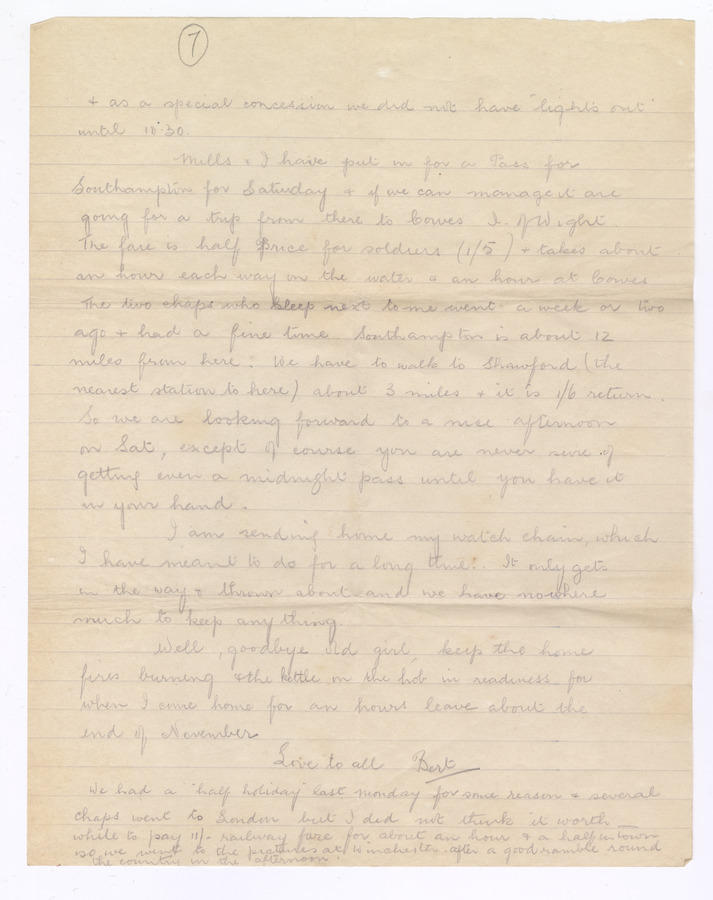 7
+ as a special concession we did not have "lights out"
until 10.30.
Mills & I have put in for a Pass for
Southampton for Saturday & if we can manage it are
going for a trip from there to Cowes I. of Wight.
The fare is half price for soldiers (1/5) & takes about
an hour each way on the water & an hour at Cowes
The two chaps who sleep next to me went a week or two
ago & had a fine time. Southampton is about 12
miles from here. We have to walk to Shawford (the
nearest station to here) about 3 miles & it is 1/6 return.
So we are looking forward to a nice afternoon
on Sat, except of course you are never sure of
getting even a midnight pass until you have it
in your hand.
I am sending home my watch chain, which
I have meant to do for a long time. It only gets
in the way & thrown about and we have nowhere
much to keep anything.
Well, goodbye old girl, keep the home
fires burning & the kettle on the hob in readiness for
when I come home for an hours leave about the
end of November
Love to all Bert
We had a "half holiday" last Monday for some reason & several
chaps went to London but I did not think it worth
while to pay 11/- railway fare for about an hour & a half in town
so we went to the pictures at Winchester after a good ramble round
the country in the afternoon.